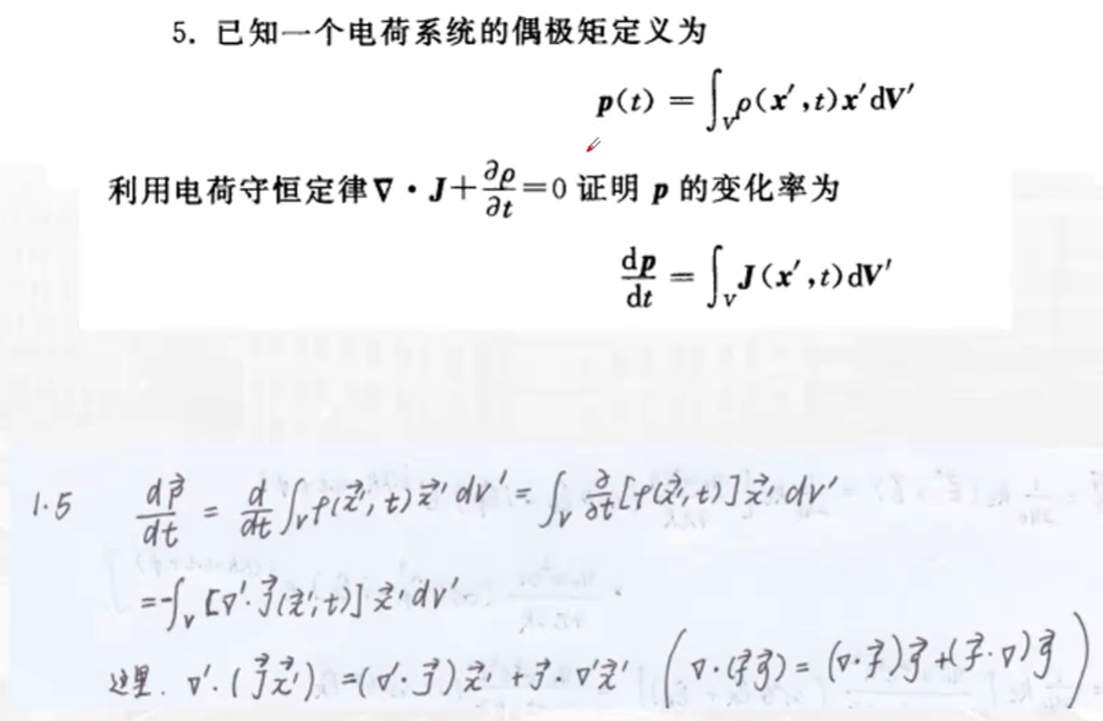 5. 已知一个电荷系统的偶极矩定义为
p(t) = ∫_V ρ(x′,t)x′dV′
利用电荷守恒定律∇·J+∂ρ/∂t=0 证明 p 的变化率为
dp/dt = ∫_V J(x′,t)dV′
1.5 dp⃗/dt = d/dt ∫_V ρ(x⃗′,t)x⃗′dV′ = ∫_V ∂/∂t[ρ(x⃗′,t)]x⃗′dV′
=-∫_V [∇′·J⃗(x⃗′,t)]x⃗′dV′
这里. ∇′·(J⃗x⃗′) = (∇′·J⃗)x⃗′+J⃗·∇′x⃗′ (∇·(f⃗g⃗) = (∇·f⃗)g⃗+(f⃗·∇)g⃗)